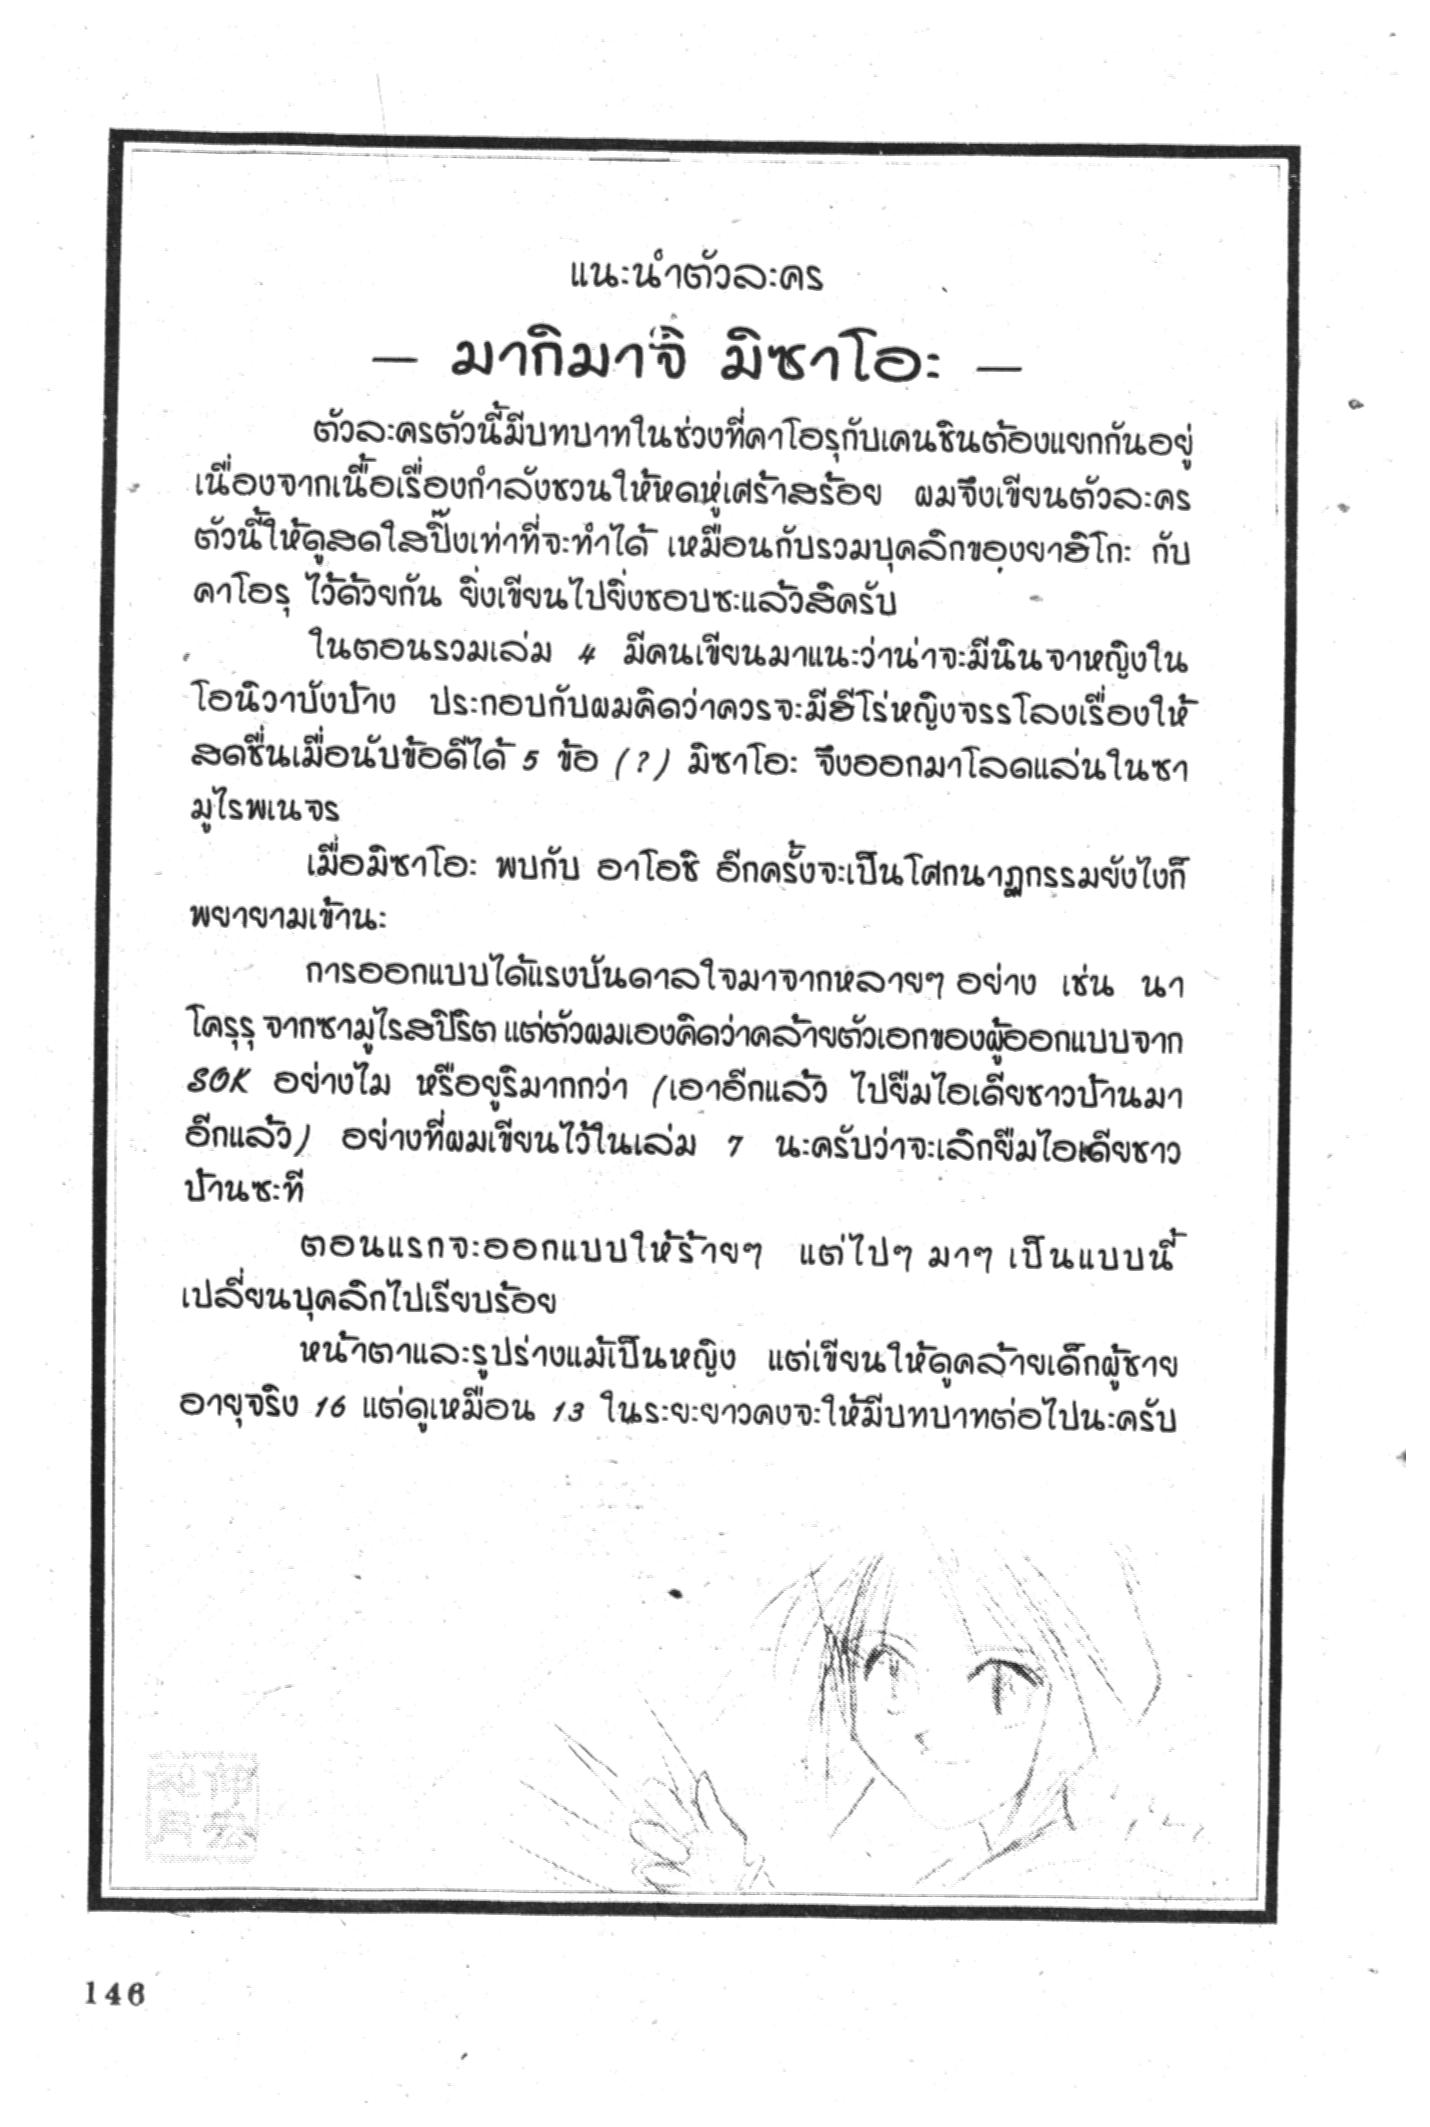 แนะนำตัวละคร
– มากิมาจิ มิซาโอะ –
ตัวละครตัวนี้มีบทบาทในช่วงที่คาโอรุกับเคนชินต้องแยกกันอยู่
เนื่องจากเนื้อเรื่องกำลังชวนให้หดหู่เศร้าสร้อย ผมจึงเขียนตัวละคร
ตัวนี้ให้ดูสดใสปิ๊งเท่าที่จะทำได้ เหมือนกับรวมบุคลิกของยาฮิโกะ กับ
คาโอรุ ไว้ด้วยกัน ยิ่งเขียนไปยิ่งชอบซะแล้วสิครับ
ในตอนรวมเล่ม 4 มีคนเขียนมาแนะว่าน่าจะมีนินจาหญิงใน
โอนิวาบังบ้าง ประกอบกับผมคิดว่าควรจะมีฮีโร่หญิงจรรโลงเรื่องให้
สดชื่นเมื่อนับข้อดีได้ 5 ข้อ (?) มิซาโอะ จึงออกมาโลดแล่นในซา
มูไรพเนจร
เมื่อมิซาโอะ พบกับ อาโอชิ อีกครั้งจะเป็นโศกนาฏกรรมยังไงก็
พยายามเข้านะ
การออกแบบได้แรงบันดาลใจมาจากหลายๆ อย่าง เช่น นา
โครุรุ จากซามูไรสปิริต แต่ตัวผมเองคิดว่าคล้ายตัวเอกของผู้ออกแบบจาก
SOK อย่างไม หรือยูริมากกว่า (เอาอีกแล้ว ไปยืมไอเดียชาวบ้านมา
อีกแล้ว) อย่างที่ผมเขียนไว้ในเล่ม 7 นะครับว่าจะเลิกยืมไอเดียชาว
บ้านซะที
ตอนแรกจะออกแบบให้ร้ายๆ แต่ไปๆ มาๆ เป็นแบบนี้
เปลี่ยนบุคลิกไปเรียบร้อย
หน้าตาและรูปร่างแม้เป็นหญิง แต่เขียนให้ดูคล้ายเด็กผู้ชาย
อายุจริง 16 แต่ดูเหมือน 13 ในระยะยาวคงจะให้มีบทบาทต่อไปนะครับ
146